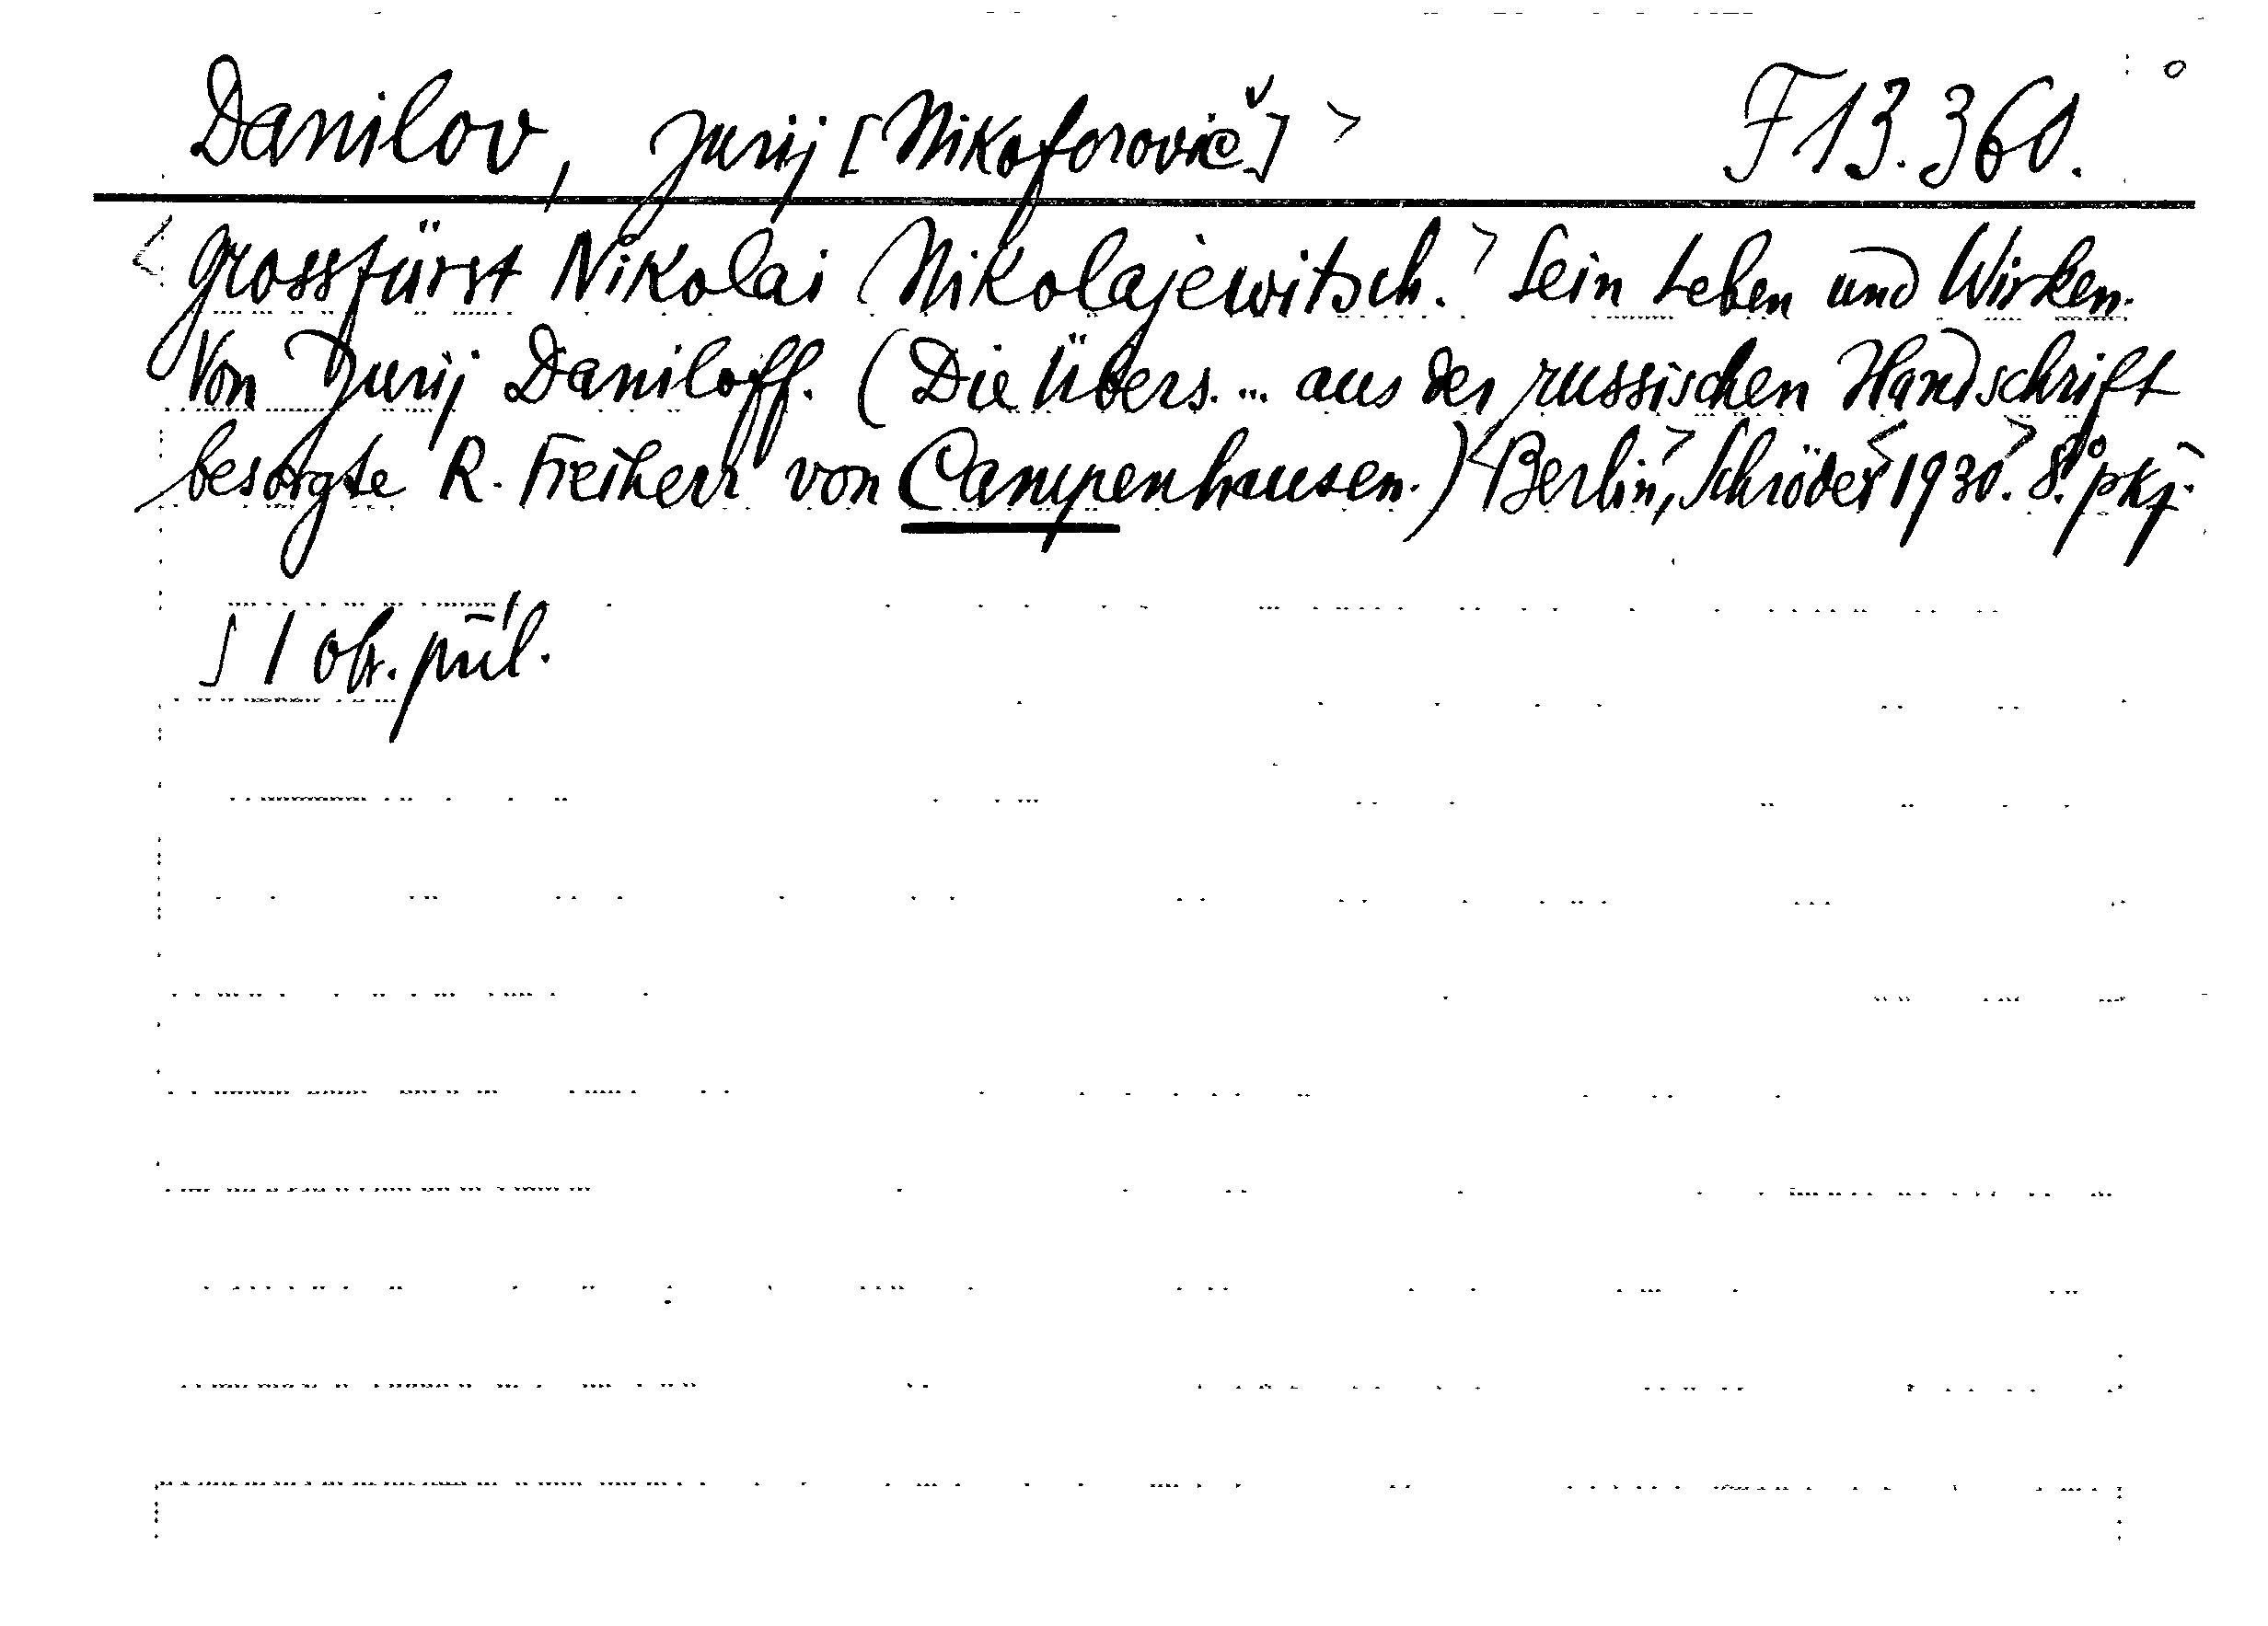 Danilov, Jurij [Nikoforovič] > F 13.360.
<Grossfürst Nikolai Nikolajewitsch.> Sein Leben und Wirken.
Von Jurij Daniloff. (Die Übers. ... aus der russischen Handschrift
besorgte R. Freiherr von Campenhausen.) <Berlin,> Schröder <1930.> 8.° pkj.
S 1 ob. příl.